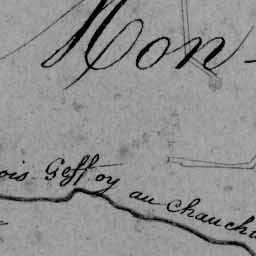 Mon-
ois Geffroy au Chauchi